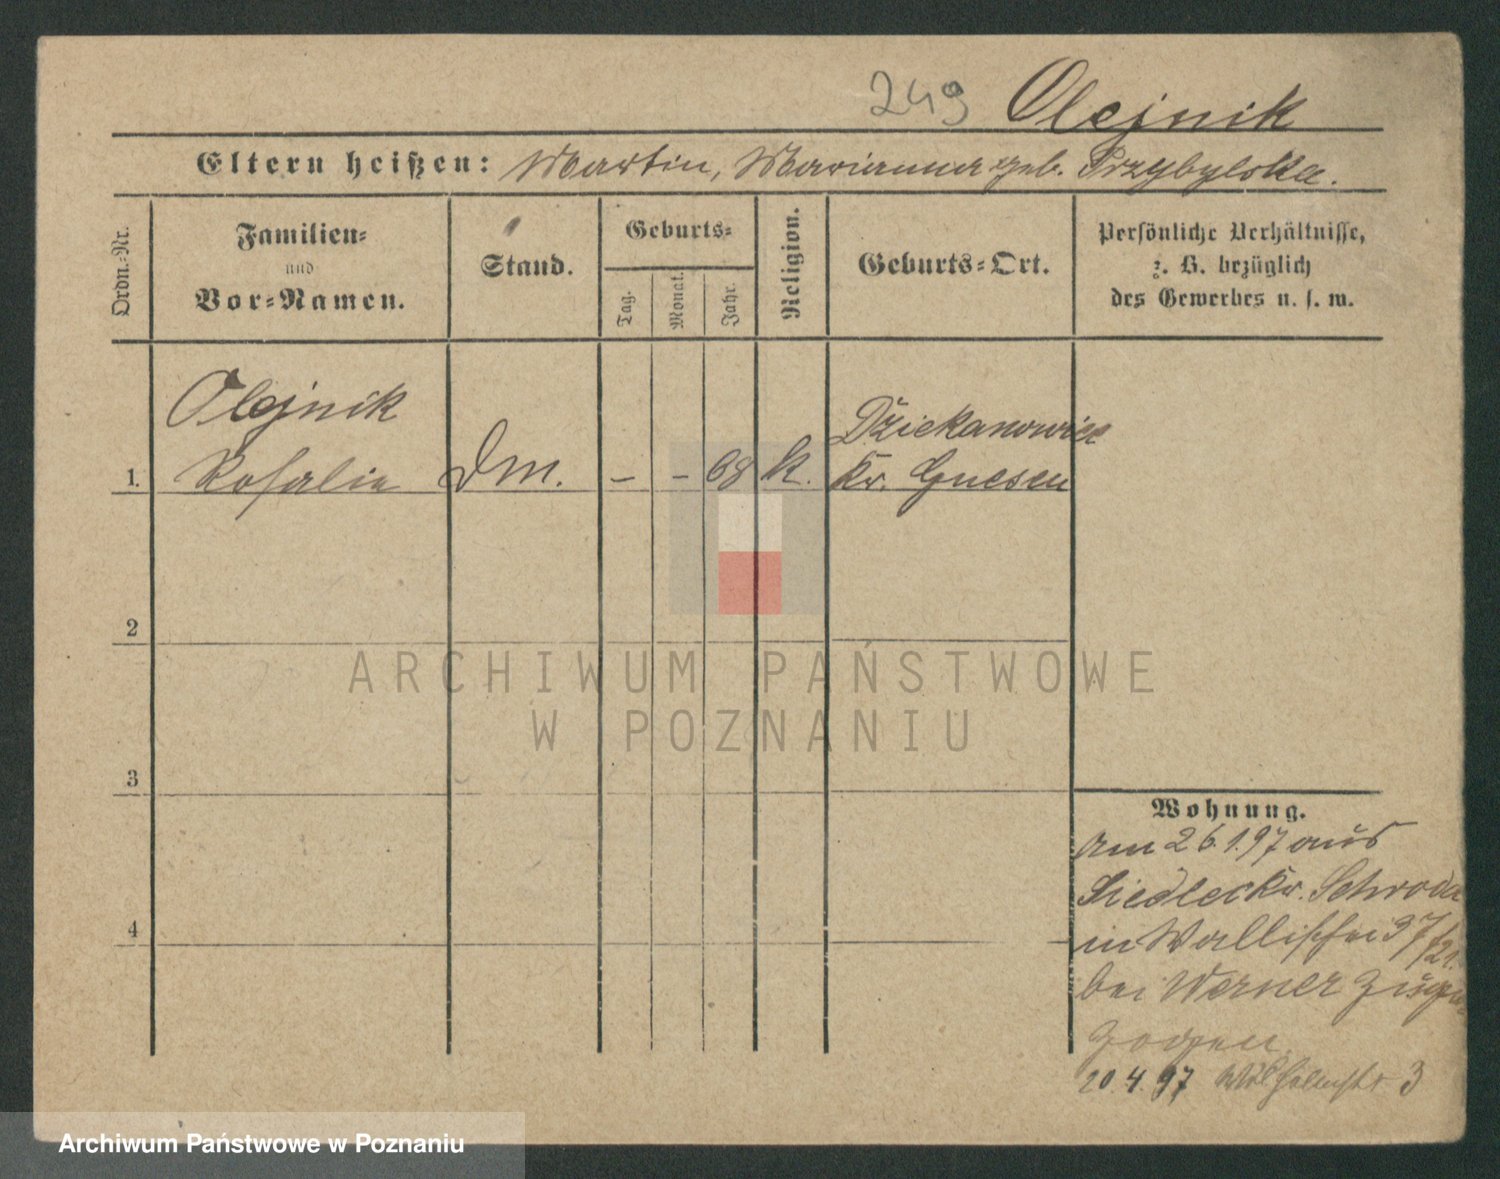 249 Olejnik
Eltern heißen: Martin, Marianna geb. Przybylska.
Ordn.-Nr.
Familien-
und
Vor-Namen.
Stand.
Geburts-
Tag.
Monat.
Jahr.
Religion.
Geburts-Ort.
Persönliche Verhältnisse,
z. B. bezüglich
des Gewerbes u. s. w.
Olejnik
1. Rosalie Dm. – – 68 k.
Dziekanowice
Kr. Gnesen
2
ARCHIWUM PAŃSTWOWE
W POZNANIU
3
4
Wohnung.
am 26.1.97 aus
Siedlec Kr. Schroda
in Wallischei 37/21.
bei Werner zuge-
zogen.
20.4.97 Wilhelmstr 3
Archiwum Państwowe w Poznaniu